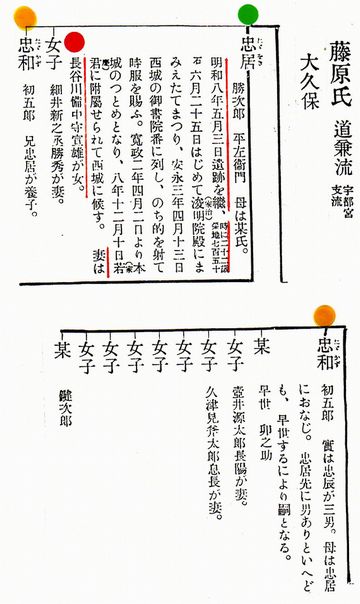 藤原氏 道兼流 宇都宮支流
大久保
忠居
勝次郎 平左衞門 母は某氏。
明和八年五月三日遺跡を繼、時に二十二歳 采地七百五十石
六月二十五日はじめて浚明院殿にま
みえたてまつり、安永三年四月十三日
西城の御書院番に列し、のち的を射て
時服を賜ふ。寛政二年四月二日より本
城のつとめとなり、八年十二月十日若
君に附屬せられて西城に候す。 妻は
長谷川備中守宣雄が女。
女子 細井新之丞勝秀が妻。
忠和 初五郎 兄忠居が養子。
忠和 初五郎 實は忠辰が三男。母は忠居
におなじ。忠居先に男ありといへど
も、早世するにより嗣となる。
某 早世 卯之助
女子 壺井源太郎長陽が妻。
女子 久津見斧太郎息長が妻。
女子
女子
女子
女子
女子
某 鍵次郎